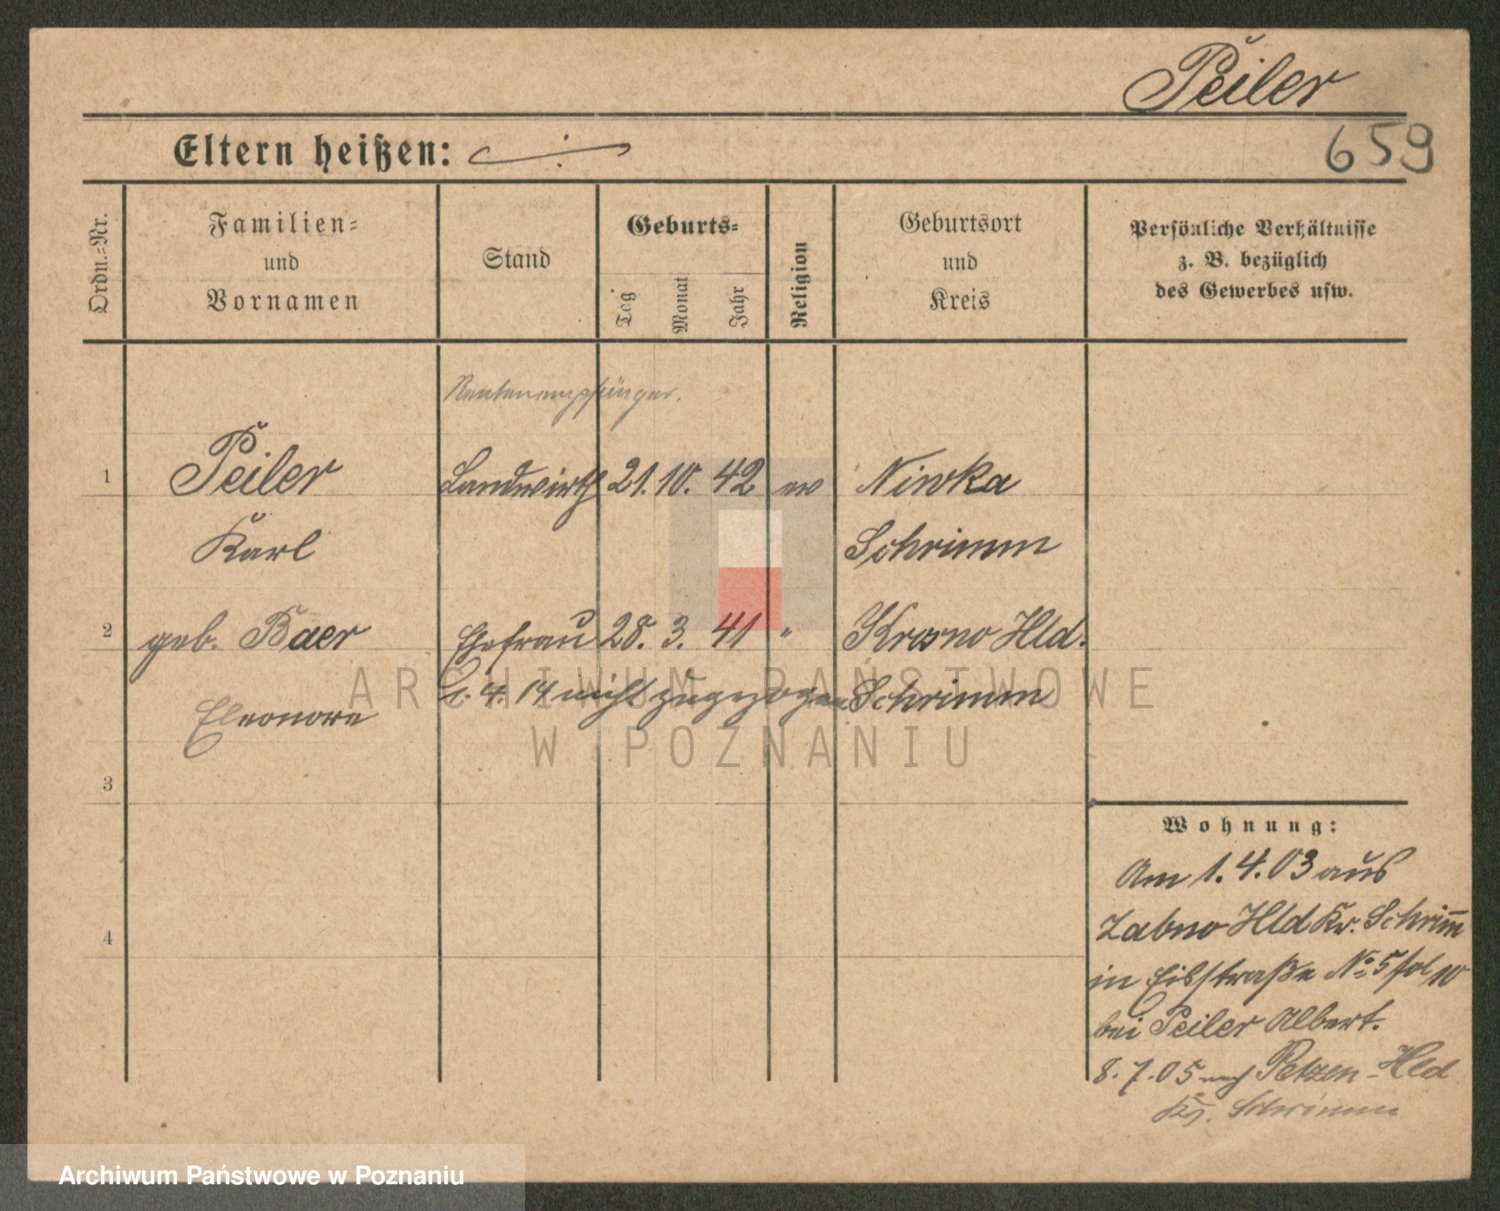 Peiler
659
Eltern heißen:
Ordn.-Nr.
Familien-
und
Vornamen
Stand
Geburts-
Tag
Monat
Jahr
Religion
Geburtsort
und
Kreis
Persönliche Verhältnisse
z. B. bezüglich
des Gewerbes usw.
Rentenempfänger.
1 Peiler Landwirth 21. 10. 42 ev Niwka
Karl Schrimm
2 geb. Baer Ehefrau 28. 3. 41 " Krosno Hld.
1. 4. 14 nicht zugezogen Schrimm
Eleonore
3
4
Wohnung:
Am 1. 4. 03 aus
Zabno Hld Kr. Schrim̅
in Eibstraße No 5 fol 10
bei Peiler Albert.
8. 7. 05 nach Petzen-Hld
Kr. Schrimm
ARCHIWUM PAŃSTWOWE
W POZNANIU
Archiwum Państwowe w Poznaniu